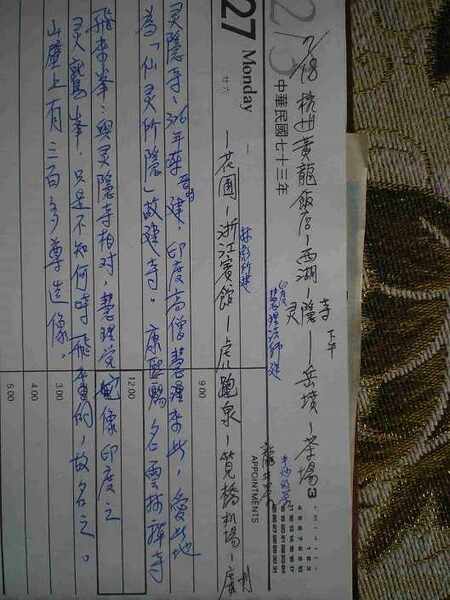 7/18 杭州黃龍飯店-西湖-灵隱寺-岳墳-茶場
下午
印度慧理法師建
-花圃-浙江賓館-虎跑泉-筧橋机場-廣州
林彪行宮
灵隱寺,326年華建,印度高僧慧理來此,愛此地
晉時
為「仙灵所隱」故建寺。康熙賜名雲林禪寺
飛來峯:與灵隱寺相对,慧理覺它像印度之
灵鷲峯,只是不知何時飛來的,故名之。
山壁上有三百多尊造像。
27 Monday
廿六
中華民國七十三年
3
APPOINTMENTS
9.00
12.00
3.00
4.00
5.00